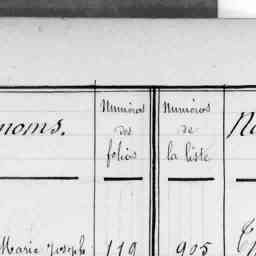 noms.
Numéros
des
folios
Numéros
de
la liste
Marie Joseph
119
905